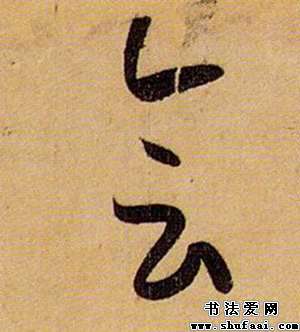 会
书法爱网
www.shufaai.com